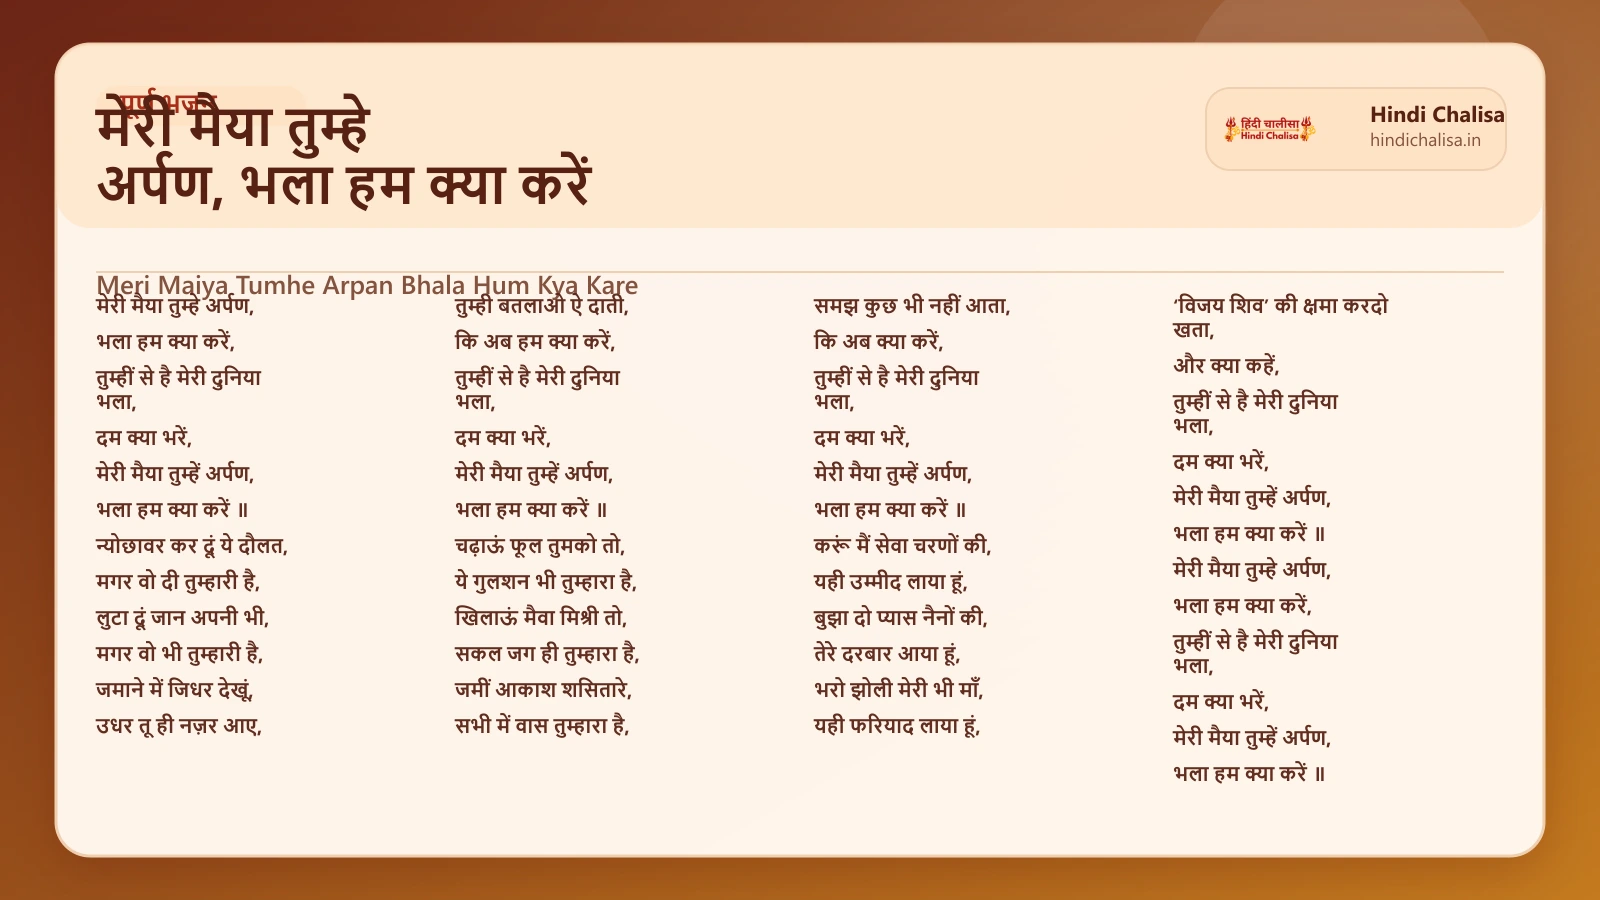 पूर्ण भजन
मेरी मैया तुम्हे
अर्पण, भला हम क्या करें
हिंदी चालीसा
Hindi Chalisa
Hindi Chalisa
hindichalisa.in
Meri Maiya Tumhe Arpan Bhala Hum Kya Kare
मेरी मैया तुम्हे अर्पण,
भला हम क्या करें,
तुम्हीं से है मेरी दुनिया
भला,
दम क्या भरें,
मेरी मैया तुम्हें अर्पण,
भला हम क्या करें ॥
न्योछावर कर दूं ये दौलत,
मगर वो दी तुम्हारी है,
लुटा दूं जान अपनी भी,
मगर वो भी तुम्हारी है,
जमाने में जिधर देखूं,
उधर तू ही नज़र आए,
तुम्ही बतलाओ ऐ दाती,
कि अब हम क्या करें,
तुम्हीं से है मेरी दुनिया
भला,
दम क्या भरें,
मेरी मैया तुम्हें अर्पण,
भला हम क्या करें ॥
चढ़ाऊं फूल तुमको तो,
ये गुलशन भी तुम्हारा है,
खिलाऊं मैवा मिश्री तो,
सकल जग ही तुम्हारा है,
जमीं आकाश शसितारे,
सभी में वास तुम्हारा है,
समझ कुछ भी नहीं आता,
कि अब क्या करें,
तुम्हीं से है मेरी दुनिया
भला,
दम क्या भरें,
मेरी मैया तुम्हें अर्पण,
भला हम क्या करें ॥
करूं मैं सेवा चरणों की,
यही उम्मीद लाया हूं,
बुझा दो प्यास नैनों की,
तेरे दरबार आया हूं,
भरो झोली मेरी भी माँ,
यही फरियाद लाया हूं,
‘विजय शिव’ की क्षमा करदो
खता,
और क्या कहें,
तुम्हीं से है मेरी दुनिया
भला,
दम क्या भरें,
मेरी मैया तुम्हें अर्पण,
भला हम क्या करें ॥
मेरी मैया तुम्हे अर्पण,
भला हम क्या करें,
तुम्हीं से है मेरी दुनिया
भला,
दम क्या भरें,
मेरी मैया तुम्हें अर्पण,
भला हम क्या करें ॥